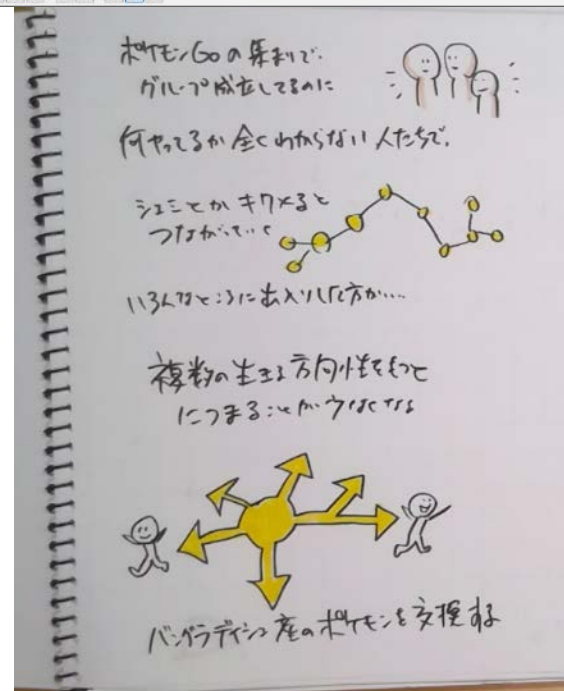 ポケモンGoの集まりで、
グループ成立してるのに
何やってるか全くわからない人たちで、
シュミとかキワメると
つながっていく
いろんなところに出入りした方が…
複数の生きる方向性をもつと
につまることが少なくなる
バングラディシュ産のポケモンを交換する